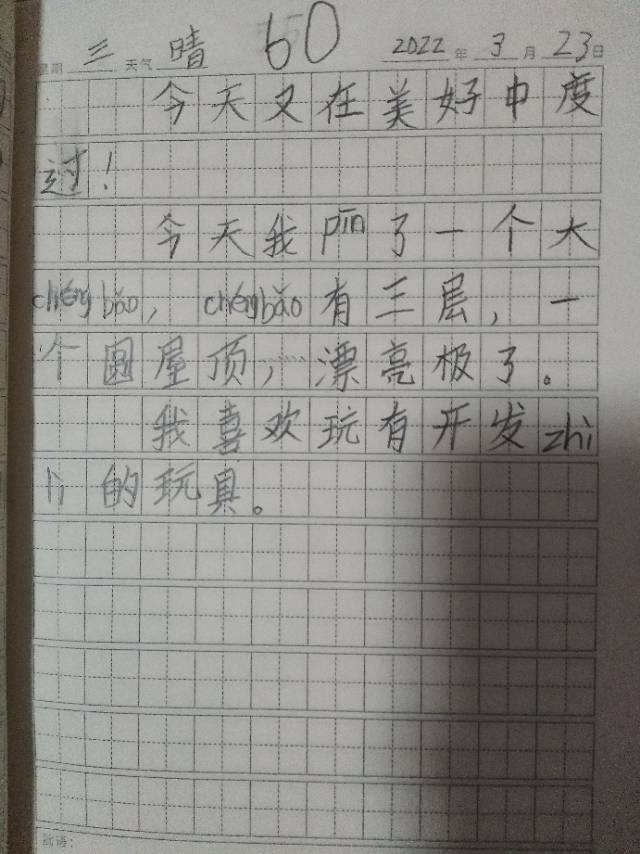 星期 三 天气 晴 60 2022 年 3 月 23 日
今天又在美好中度
过!
今天我pīn了一个大
chéngbǎo, chéngbǎo有三层,一
个圆屋顶,漂亮极了。
我喜欢玩有开发zhì
力的玩具。
批语: